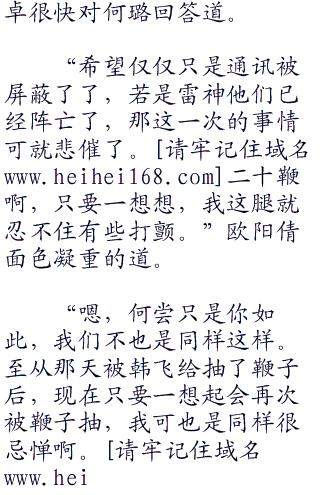 卓很快对何璐回答道。
“希望仅仅只是通讯被
屏蔽了了，若是雷神他们已
经阵亡了，那这一次的事情
可就悲催了。[请牢记住域名
www.heihei168.com]二十鞭
啊，只要一想想，我这腿就
忍不住有些打颤。”欧阳倩
面色凝重的道。
“嗯，何尝只是你如
此，我们不也是同样这样。
至从那天被韩飞给抽了鞭子
后，现在只要一想起会再次
被鞭子抽，我可也是同样很
忌惮啊。[请牢记住域名
www.hei